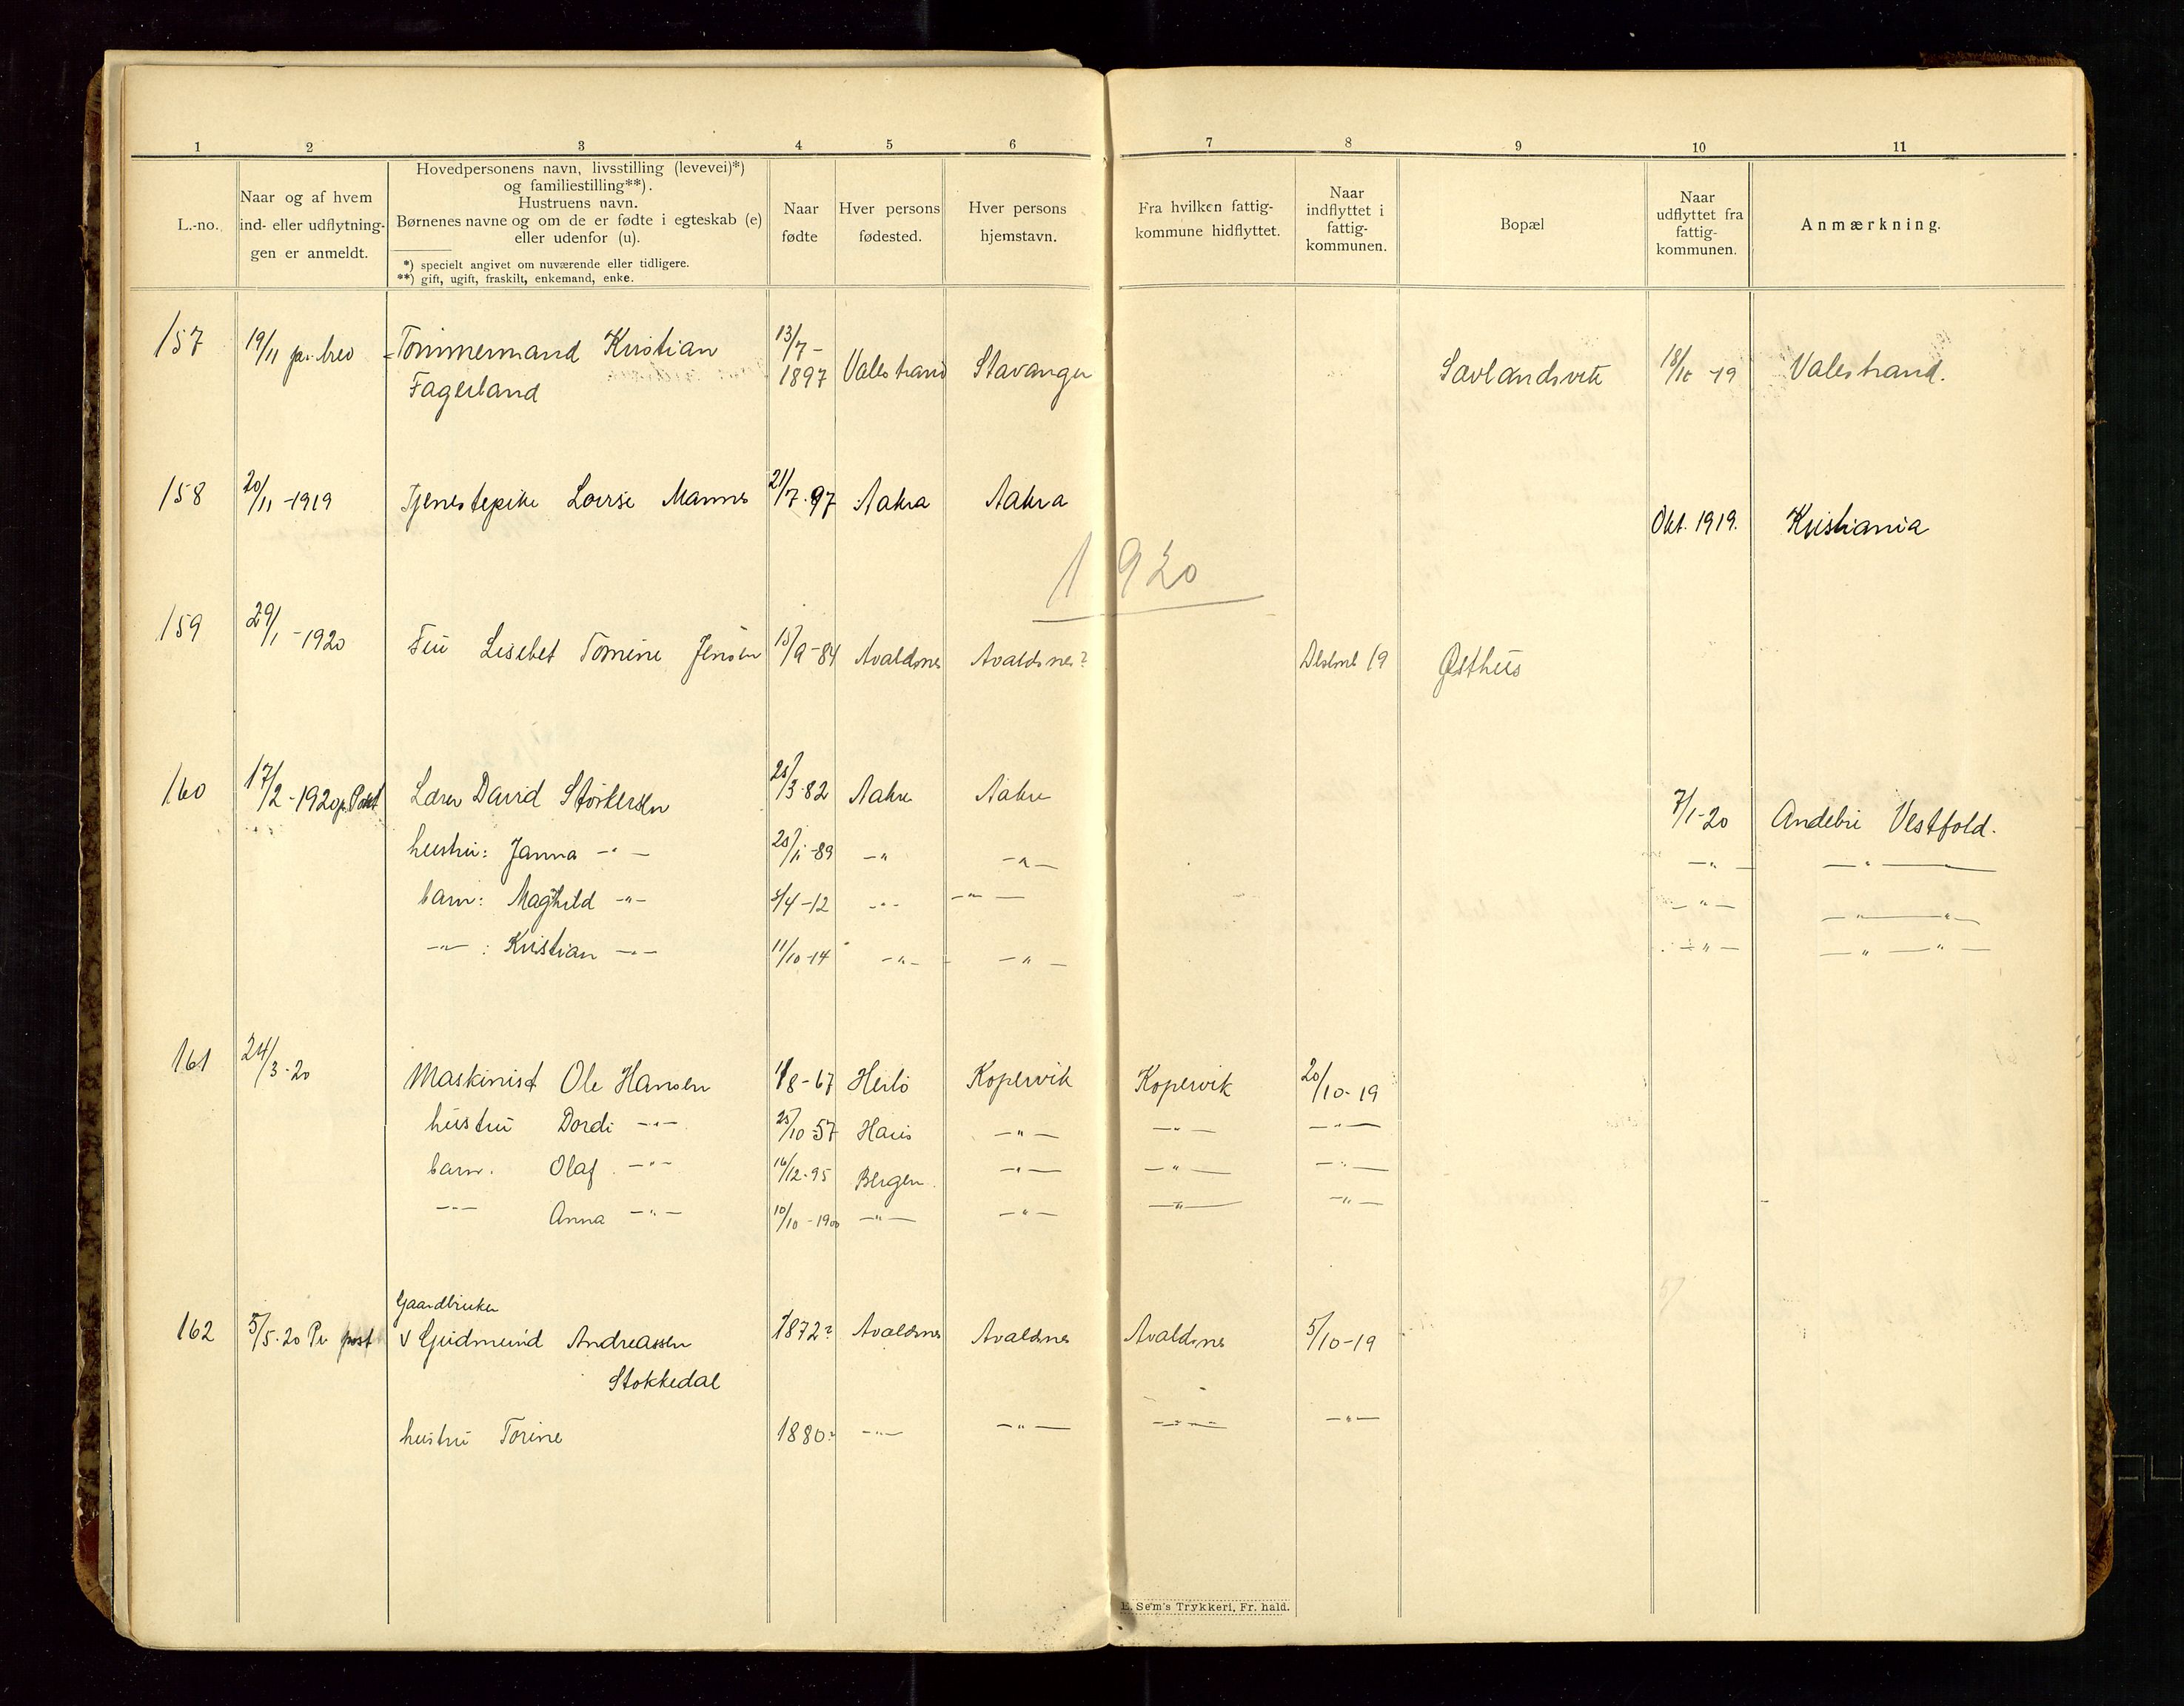 1 2 3 4 5 6 7 8 9 10 11
L.-no.
Naar og af hvem
ind- eller udflytnin-
gen er anmeldt.
Hovedpersonens navn, livsstilling (levevei)*)
og familiestilling**).
Hustruens navn.
Børnenes navne og om de er fødte i egteskab (e)
eller udenfor (u).
*) specielt angivet om nuværende eller tidligere.
**) gift, ugift, fraskilt, enkemand, enke.
Naar
fødte
Hver persons
fødested.
Hver persons
hjemstavn.
Fra hvilken fattig-
kommune hidflyttet.
Naar
indflyttet i
fattig-
kommunen.
Bopæl
Naar
udflyttet fra
fattig-
kommunen.
Anmærkning.
157 19/11 pr. brev Tømmermand Kristian 13/7- 1897 Valestrand Stavanger 18/10 -19 Valestrand.
Fagerland
158 20/11 -1919 Tjenestepike Lovise Mannes 21/7-97 Aakra Aakra Okt. 1919. Kristiania
1920
159 29/1 -1920 Fru Lisebet Tomine Jensen 15/9-84 Avaldsnes Avaldsnes? 19 Østhus
160 17/2 -1920 pr. Post Lærer David Størkersen 28/3-82 Aakre Aakre 7/1-20 Andebu Vestfold.
hustru: Janna -"- 28/11-89 -"- -"- -"- -"-
barn: Maghild -"- 3/4-12 -"- -"- -"- -"- -"-
-"- : Kristian -"- 11/10-14 -"- -"- -"- -"- -"-
161 24/3-20 Maskinist Ole Hansen 1/8-67 Herlø Kopervik Kopervik 20/10-19
hustru Dordi -"- 25/10-57 Haus -"- -"- -"-
barn. Olaf -"- 16/12-95 Bergen -"- -"- -"-
-"- Anna -"- 10/10-1900 -"- -"- -"- -"-
Gaardbruker
162 5/5-20 Pr post v Gudmund Andreassen 1872? Avaldsnes Avaldsnes Avaldsnes 5/10-19
Stokkedal
hustru Torine 1880? -"- -"- -"- -"-
E. Sem's Trykkeri, Fr. hald.